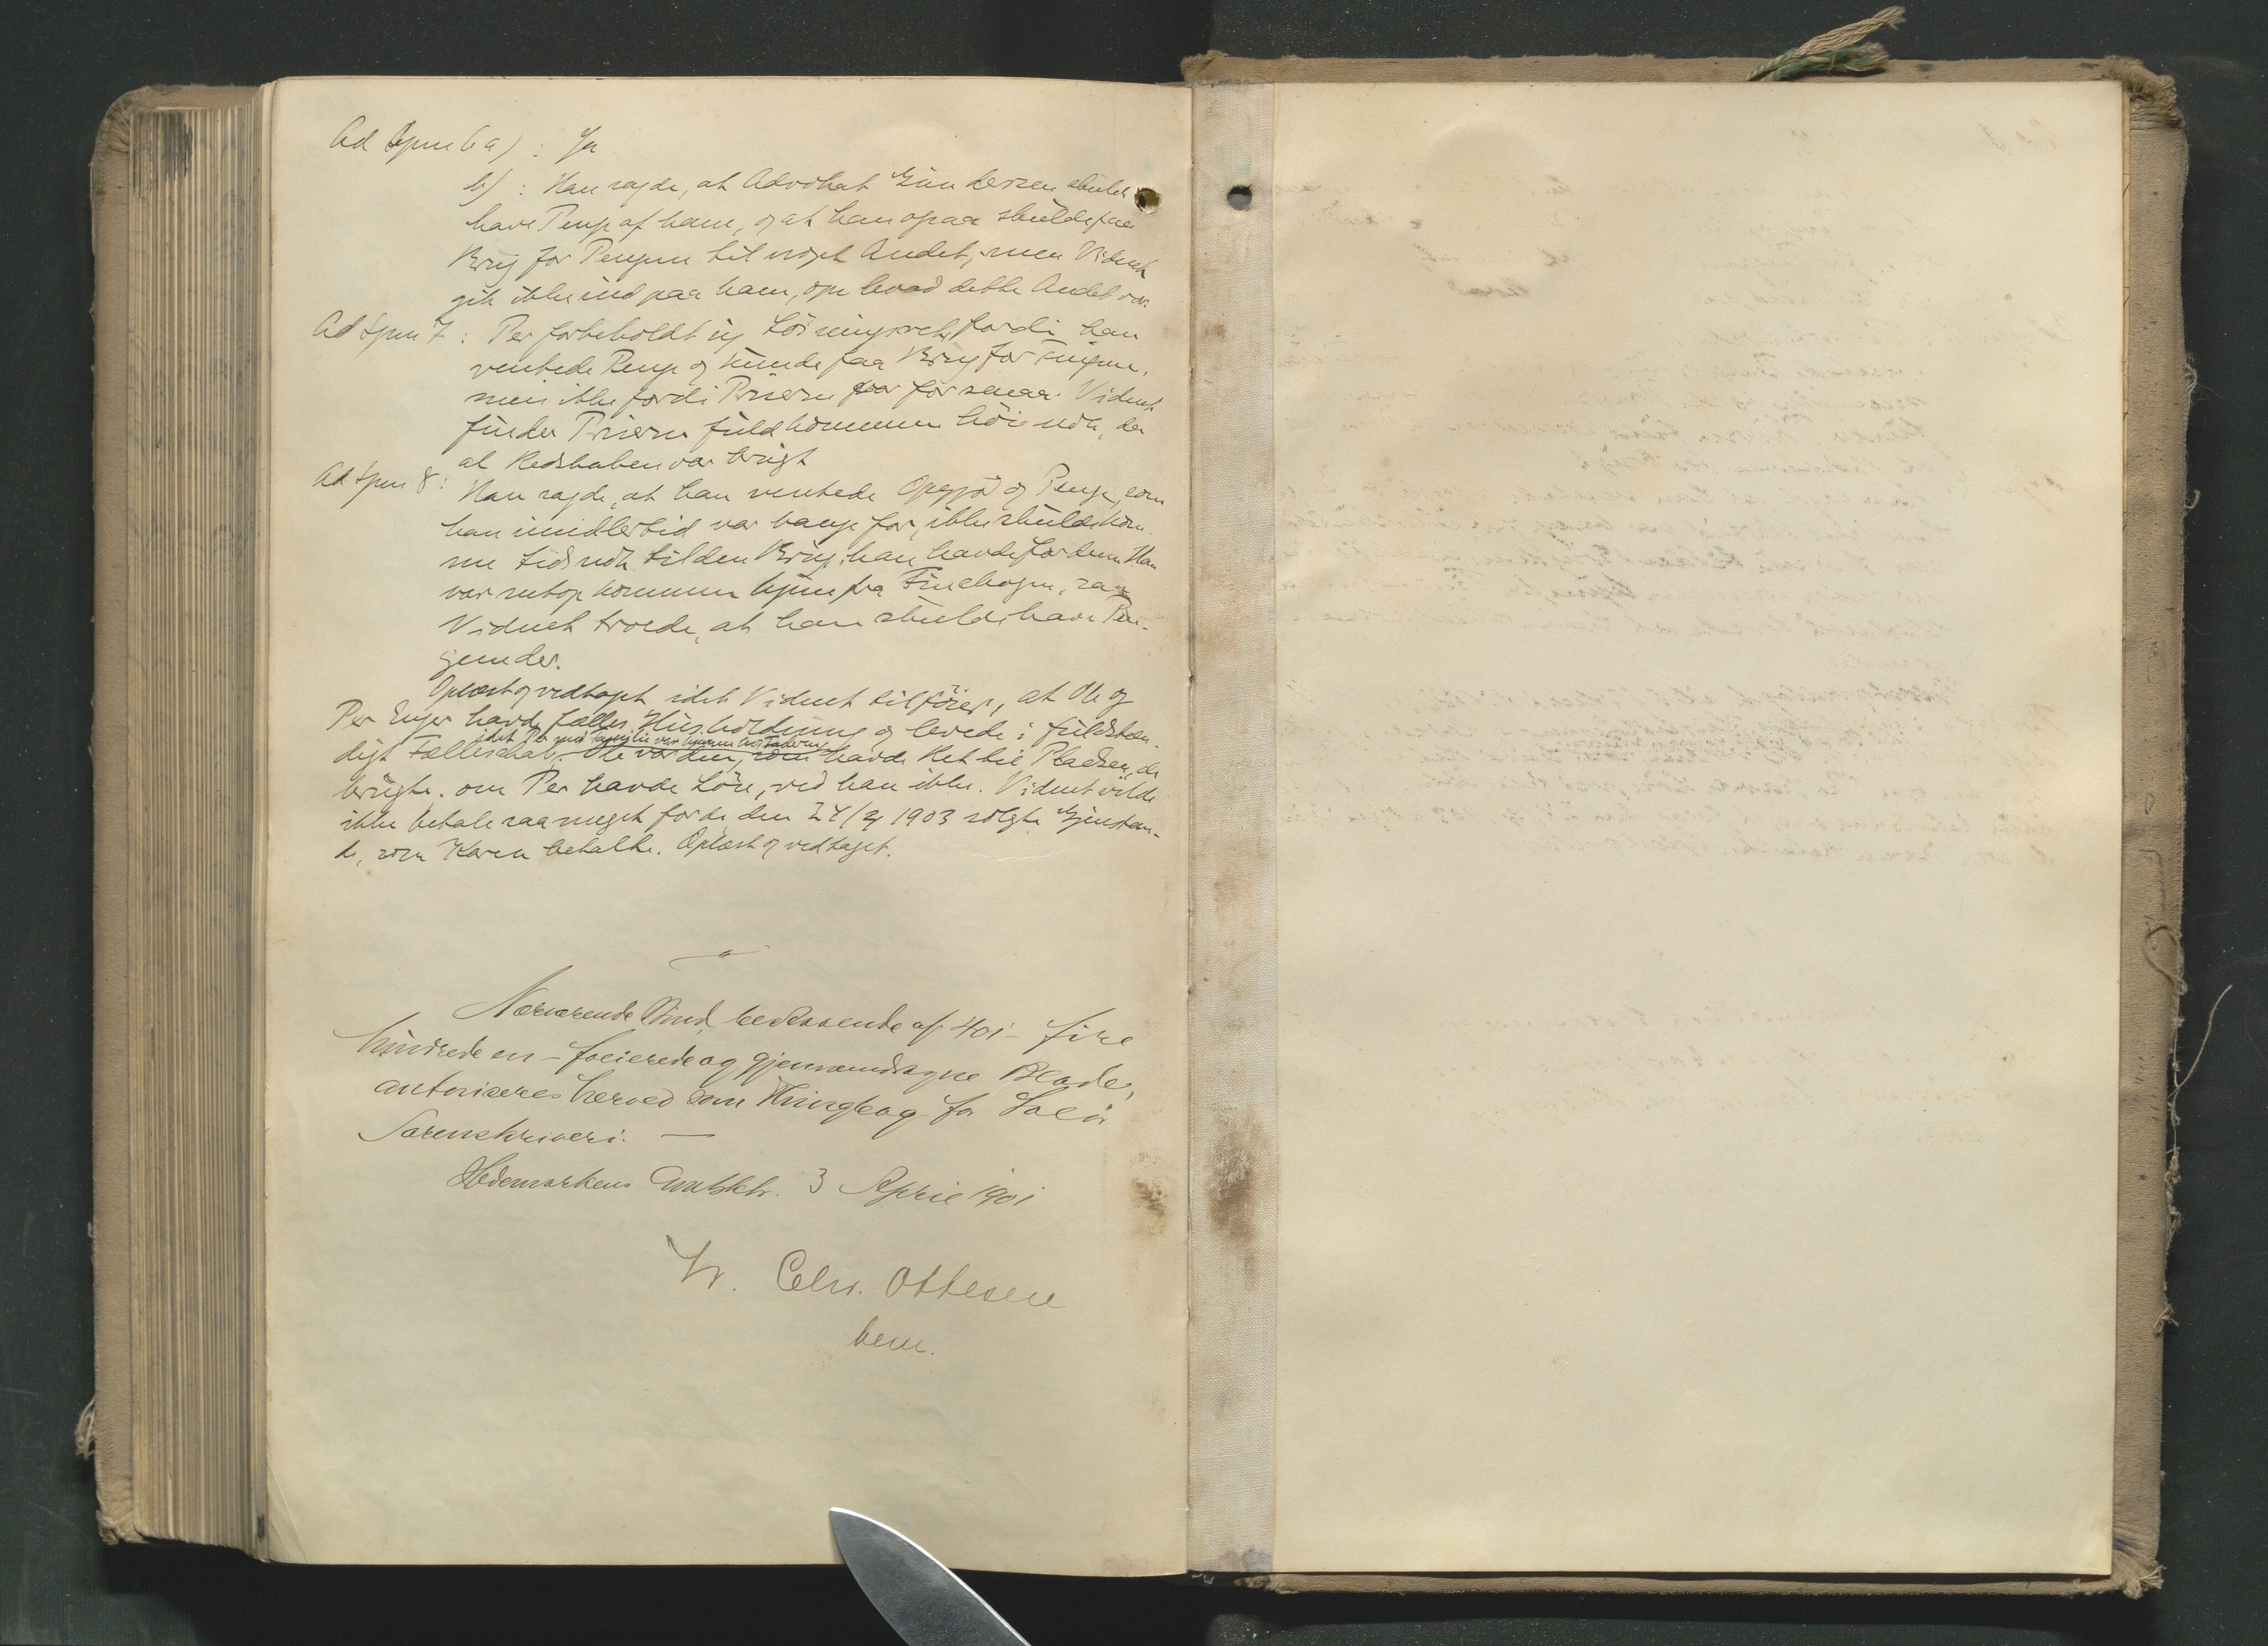 Ad Spm 6 a) : Ja
b) : Han sagde, at Advokat Gundersen skulde
have Penge af ham, og at han ogsaa skulde faa
Brug for Pengene til noget Andet, men Vidnet
gik ikke ind paa ham, om hvad dette Andet var.
Ad Spm 7 : Per forbeholdt sig Løsningsret, fordi han
ventede Penge og kunde faa Brug for Tingene,
men ikke fordi Prisen var for smaa. Vidnet
finder Prisen fuldkommen høi nok, da
al Redskaben var brugt
Ad Spm 8 : Han sagde, at han ventede Opgjør og Penge, som
han imidlertid var bange for, ikke skulde kom-
me tidsnok til den Brug, han havde for dem. Han
var netop kommen hjem fra Finskogen, saa
Vidnet troede, at han skulde have Pen-
gene der.
Oplæst og vedtaget idet Vidnet tilføier, at Ole og
Per Enger havde fælles Husholdning og levede i fuldstæn-
idet Per med Familie var hjemme hos Faderen
digt Fællesskab. Ole var den, som havde Ret til Pladsen, de
brugte. om Per havde Løn, ved han ikke. Vidnet vilde
ikke betale saa meget for de den 24/3 1903 solgte Gjenstan-
de, som Karen betalte. Oplæst og vedtaget.
Nærværende Bind, bestaaende af 401 - fire
hundrede en - folierede og gjennemdragne Blade,
autoriseres herved som Thingbog for Solør
Sorenskriveri. —
Hedemarkens Amtskt. 3 April 1901
Chr. Ottesen
bem.